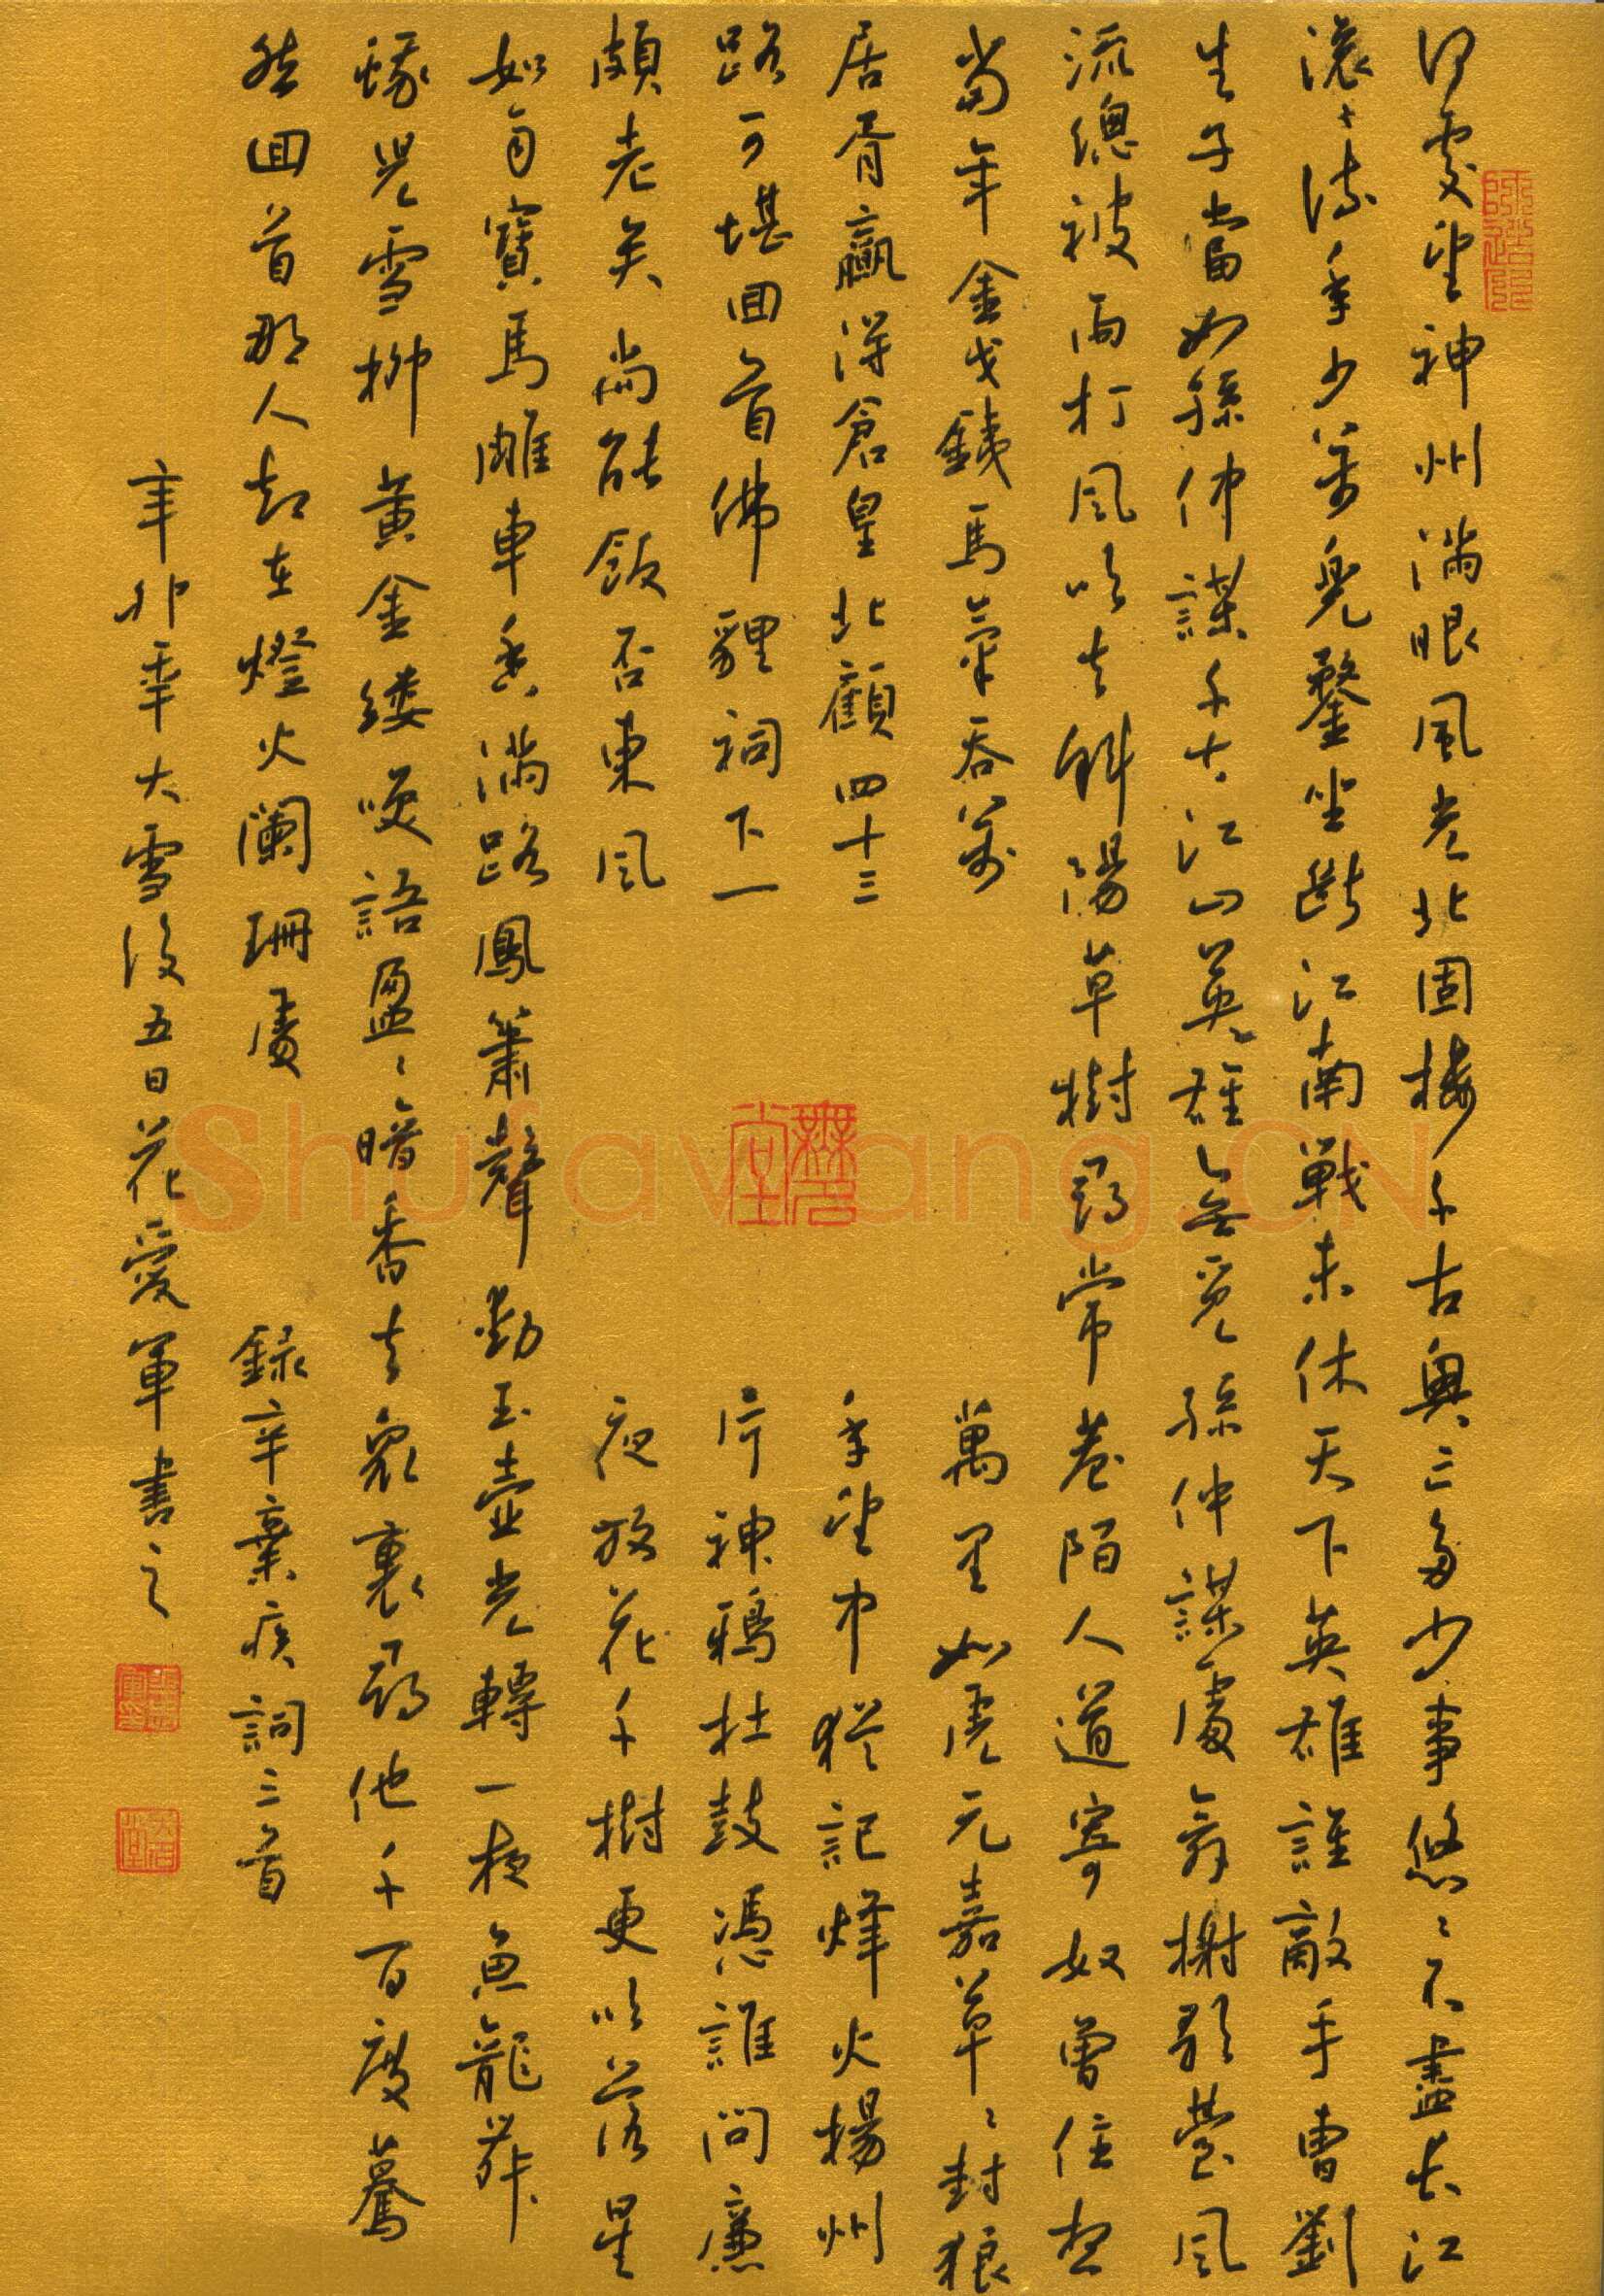 何處望神州滿眼風光北固樓千古興亡多少事悠〻不盡長江
滾〻流年少萬兜鍪坐斷江南戰未休天下英雄誰敵手曹劉
生子當如孫仲謀千古江山英雄無覓孫仲謀處舞榭歌臺風
流總被雨打風吹去斜陽草樹尋常巷陌人道寄奴曾住想
當年金戈鐵馬氣吞萬 萬里如虎元嘉草〻封狼
居胥贏得倉皇北顧四十三 年望中猶記烽火揚州
路可堪回首佛貍祠下一 片神鴉社鼓憑誰問廉
頗老矣尚能飯否東風 夜放花千樹更吹落星
如雨寶馬雕車香滿路鳳簫聲動玉壺光轉一夜魚龍舞
蛾兒雪柳黃金縷笑語盈〻暗香去眾裏尋他千百度驀
然回首那人却在燈火闌珊處 錄辛棄疾詞三首
辛卯年大雪後五日花愛軍書之
Shufawang.CN